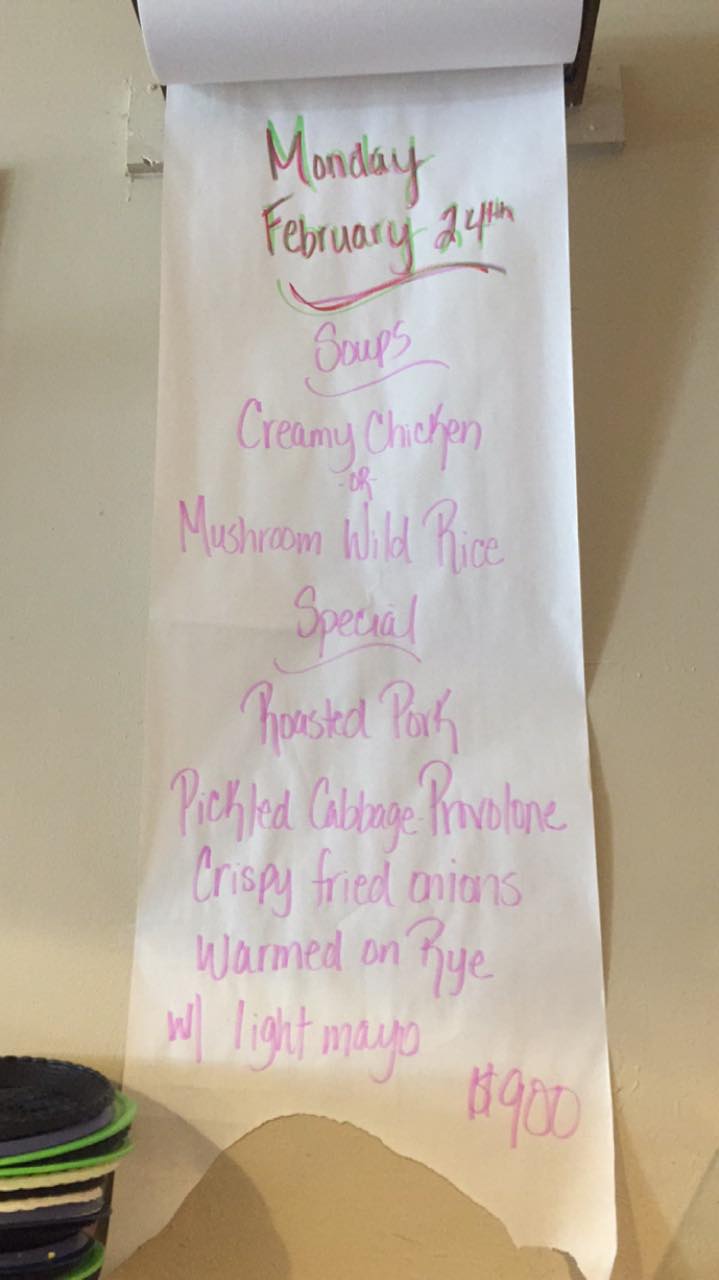 Monday
February 24th
Soups
Creamy Chicken
-OR-
Mushroom Wild Rice
Special
Roasted Pork
Pickled Cabbage-Provolone
Crispy fried onions
Warmed on Rye
w/ light mayo
$900